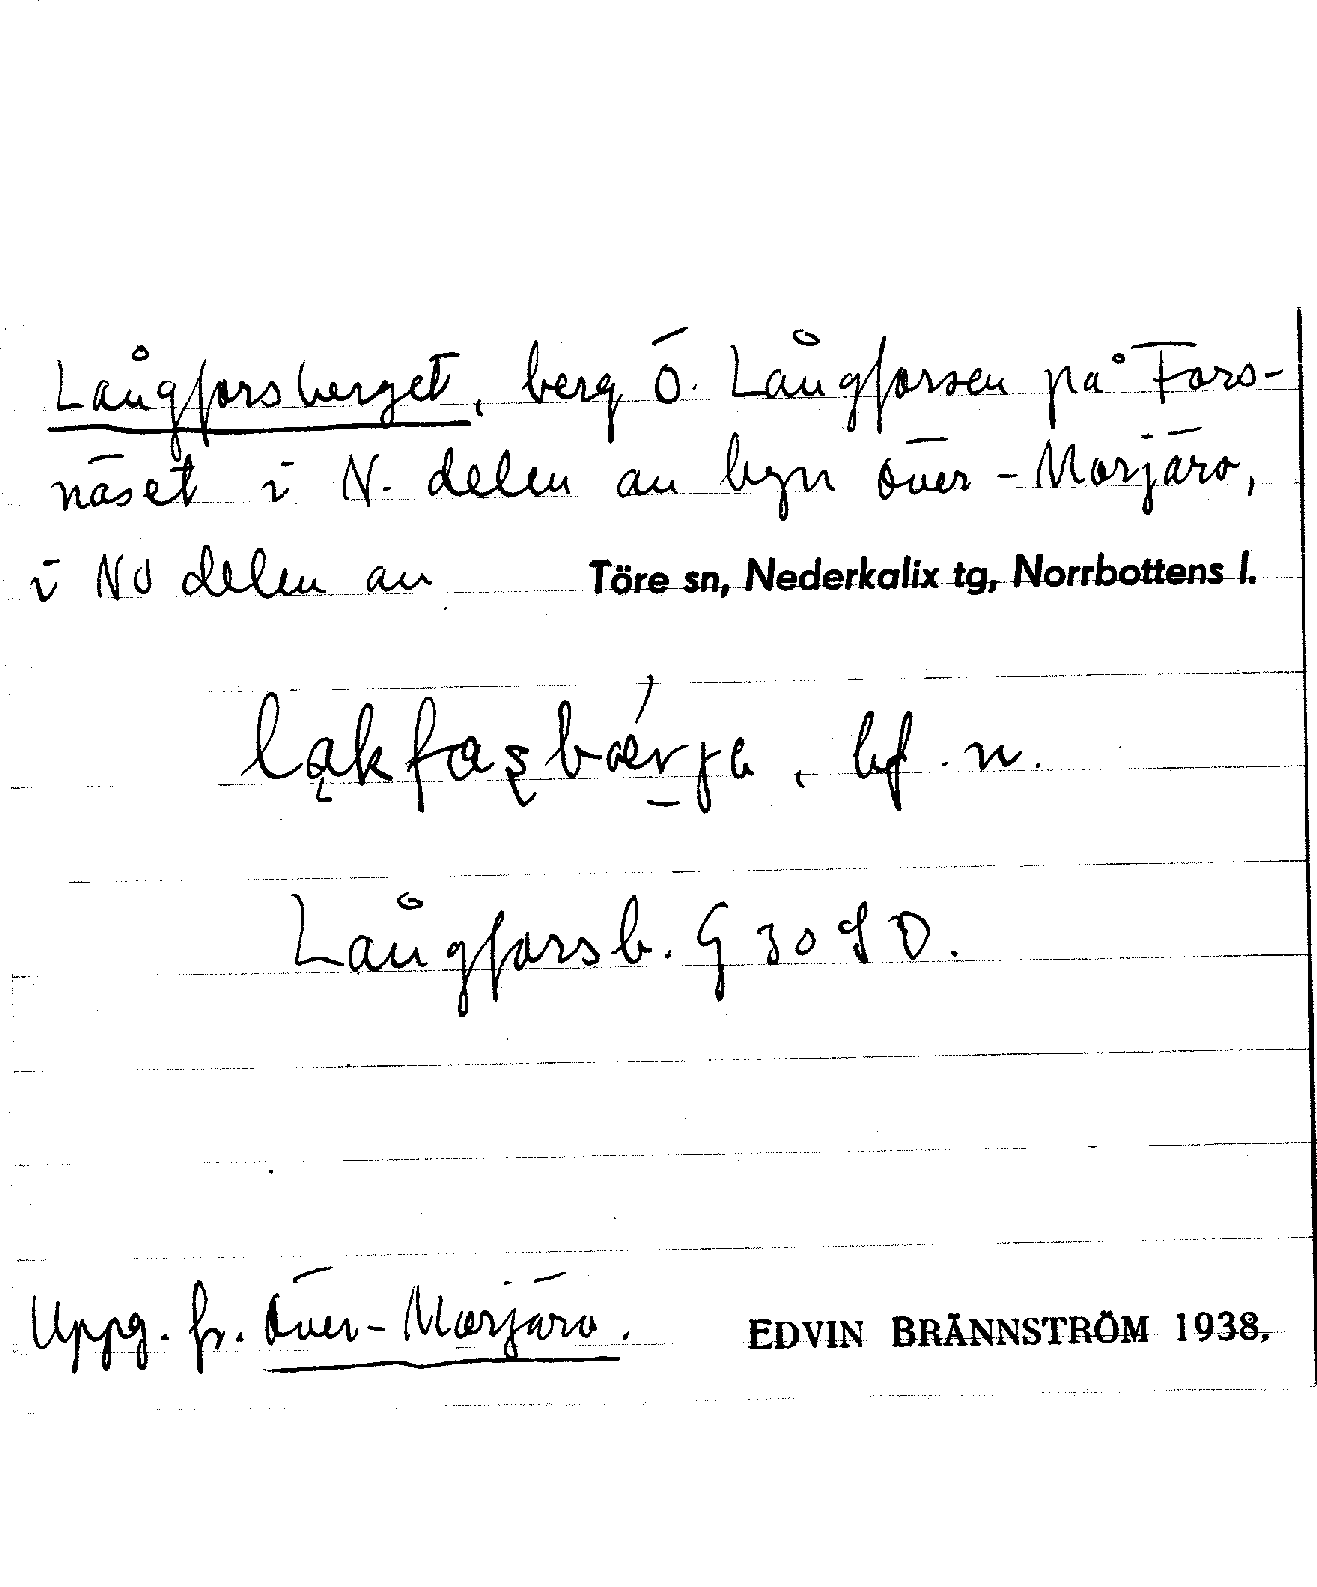 Långforsberget, berg Ö. Långforsen på Fors-
näset i N. delen av byn Över-Morjärv,
i NO delen av Töre sn, Nederkalix tg, Norrbottens l.
bf. n.
Långforsb. G 30 S O.
Uppg. fr. Över-Morjärv. EDVIN BRÄNNSTRÖM 1938.